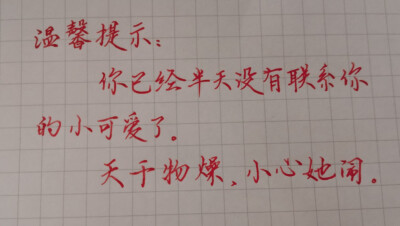 温馨提示：
你已经半天没有联系你
的小可爱了。
天干物燥，小心她闹。